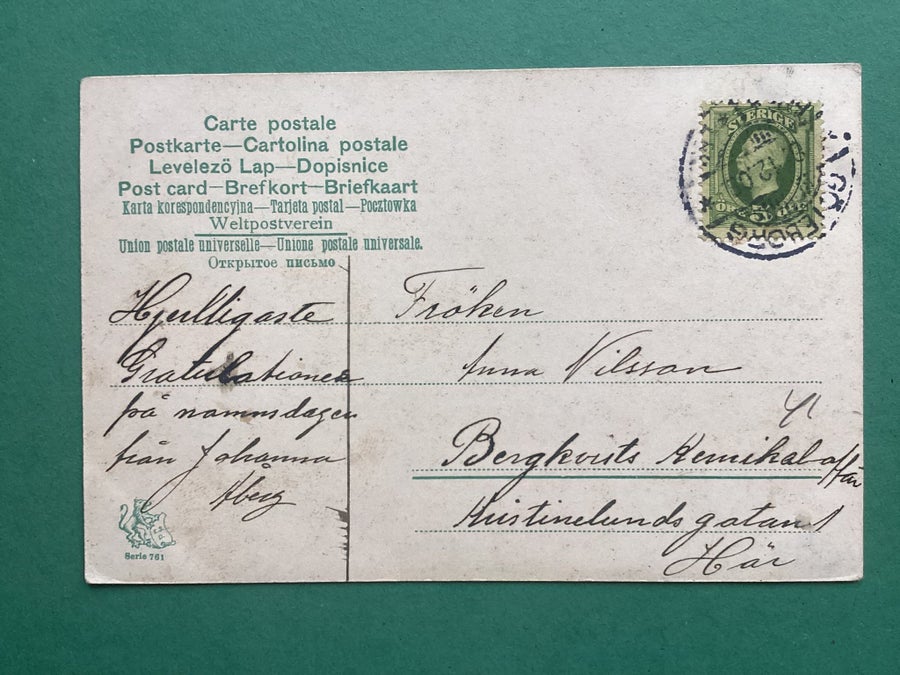 Carte postale
Postkarte—Cartolina postale
Levelező Lap—Dopisnice
Post card—Brefkort—Briefkaart
Karta korespondencyjna—Tarjeta postal—Pocztowka
Weltpostverein
Union postale universelle—Unione postale universale.
Открытое письмо
SVERIGE
GÖTEBORG
Hjertligaste
Gratulationer
på namnsdagen
från Johanna
Åberg
Fröken
Anna Nilsson
Bergkvists Kemikal affär
Kristinelundsgatan 1
Här
Serie 761